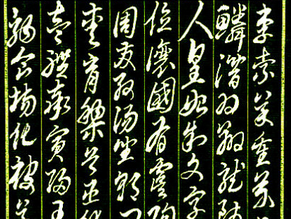 李柰菜重芥
鱗潛羽翔龍師
人皇始制文字
位讓國有虞陶
周發殷湯坐朝問
愛育黎首臣伏
壹體率賓歸王
駒食場化被草